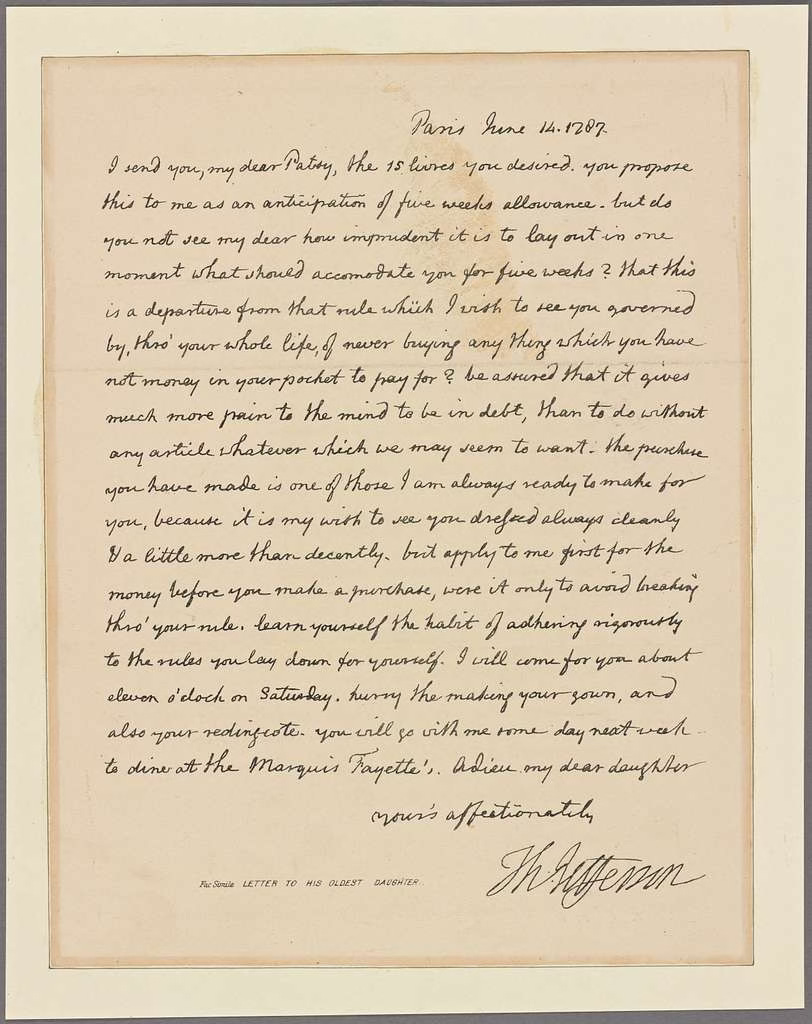 Paris June 14. 1787.
I send you, my dear Patsy, the 15 livres you desired. you propose
this to me as an anticipation of five weeks allowance. but do
you not see my dear how imprudent it is to lay out in one
moment what should accomodate you for five weeks? that this
is a departure from that rule which I wish to see you governed
by, thro' your whole life, of never buying any thing which you have
not money in your pocket to pay for? be assured that it gives
much more pain to the mind to be in debt, than to do without
any article whatever which we may seem to want. the purchase
you have made is one of those I am always ready to make for
you, because it is my wish to see you dressed always cleanly
& a little more than decently. but apply to me first for the
money before you make a purchase, were it only to avoid breaking
thro' your rule. learn yourself the habit of adhering rigorously
to the rules you lay down for yourself. I will come for you about
eleven o'clock on Saturday. hurry the making your gown, and
also your redingcote. you will go with me some day next week
to dine at the Marquis Fayette's. Adieu my dear daughter
your's affectionately
Th. Jefferson
Fac Simile LETTER TO HIS OLDEST DAUGHTER.